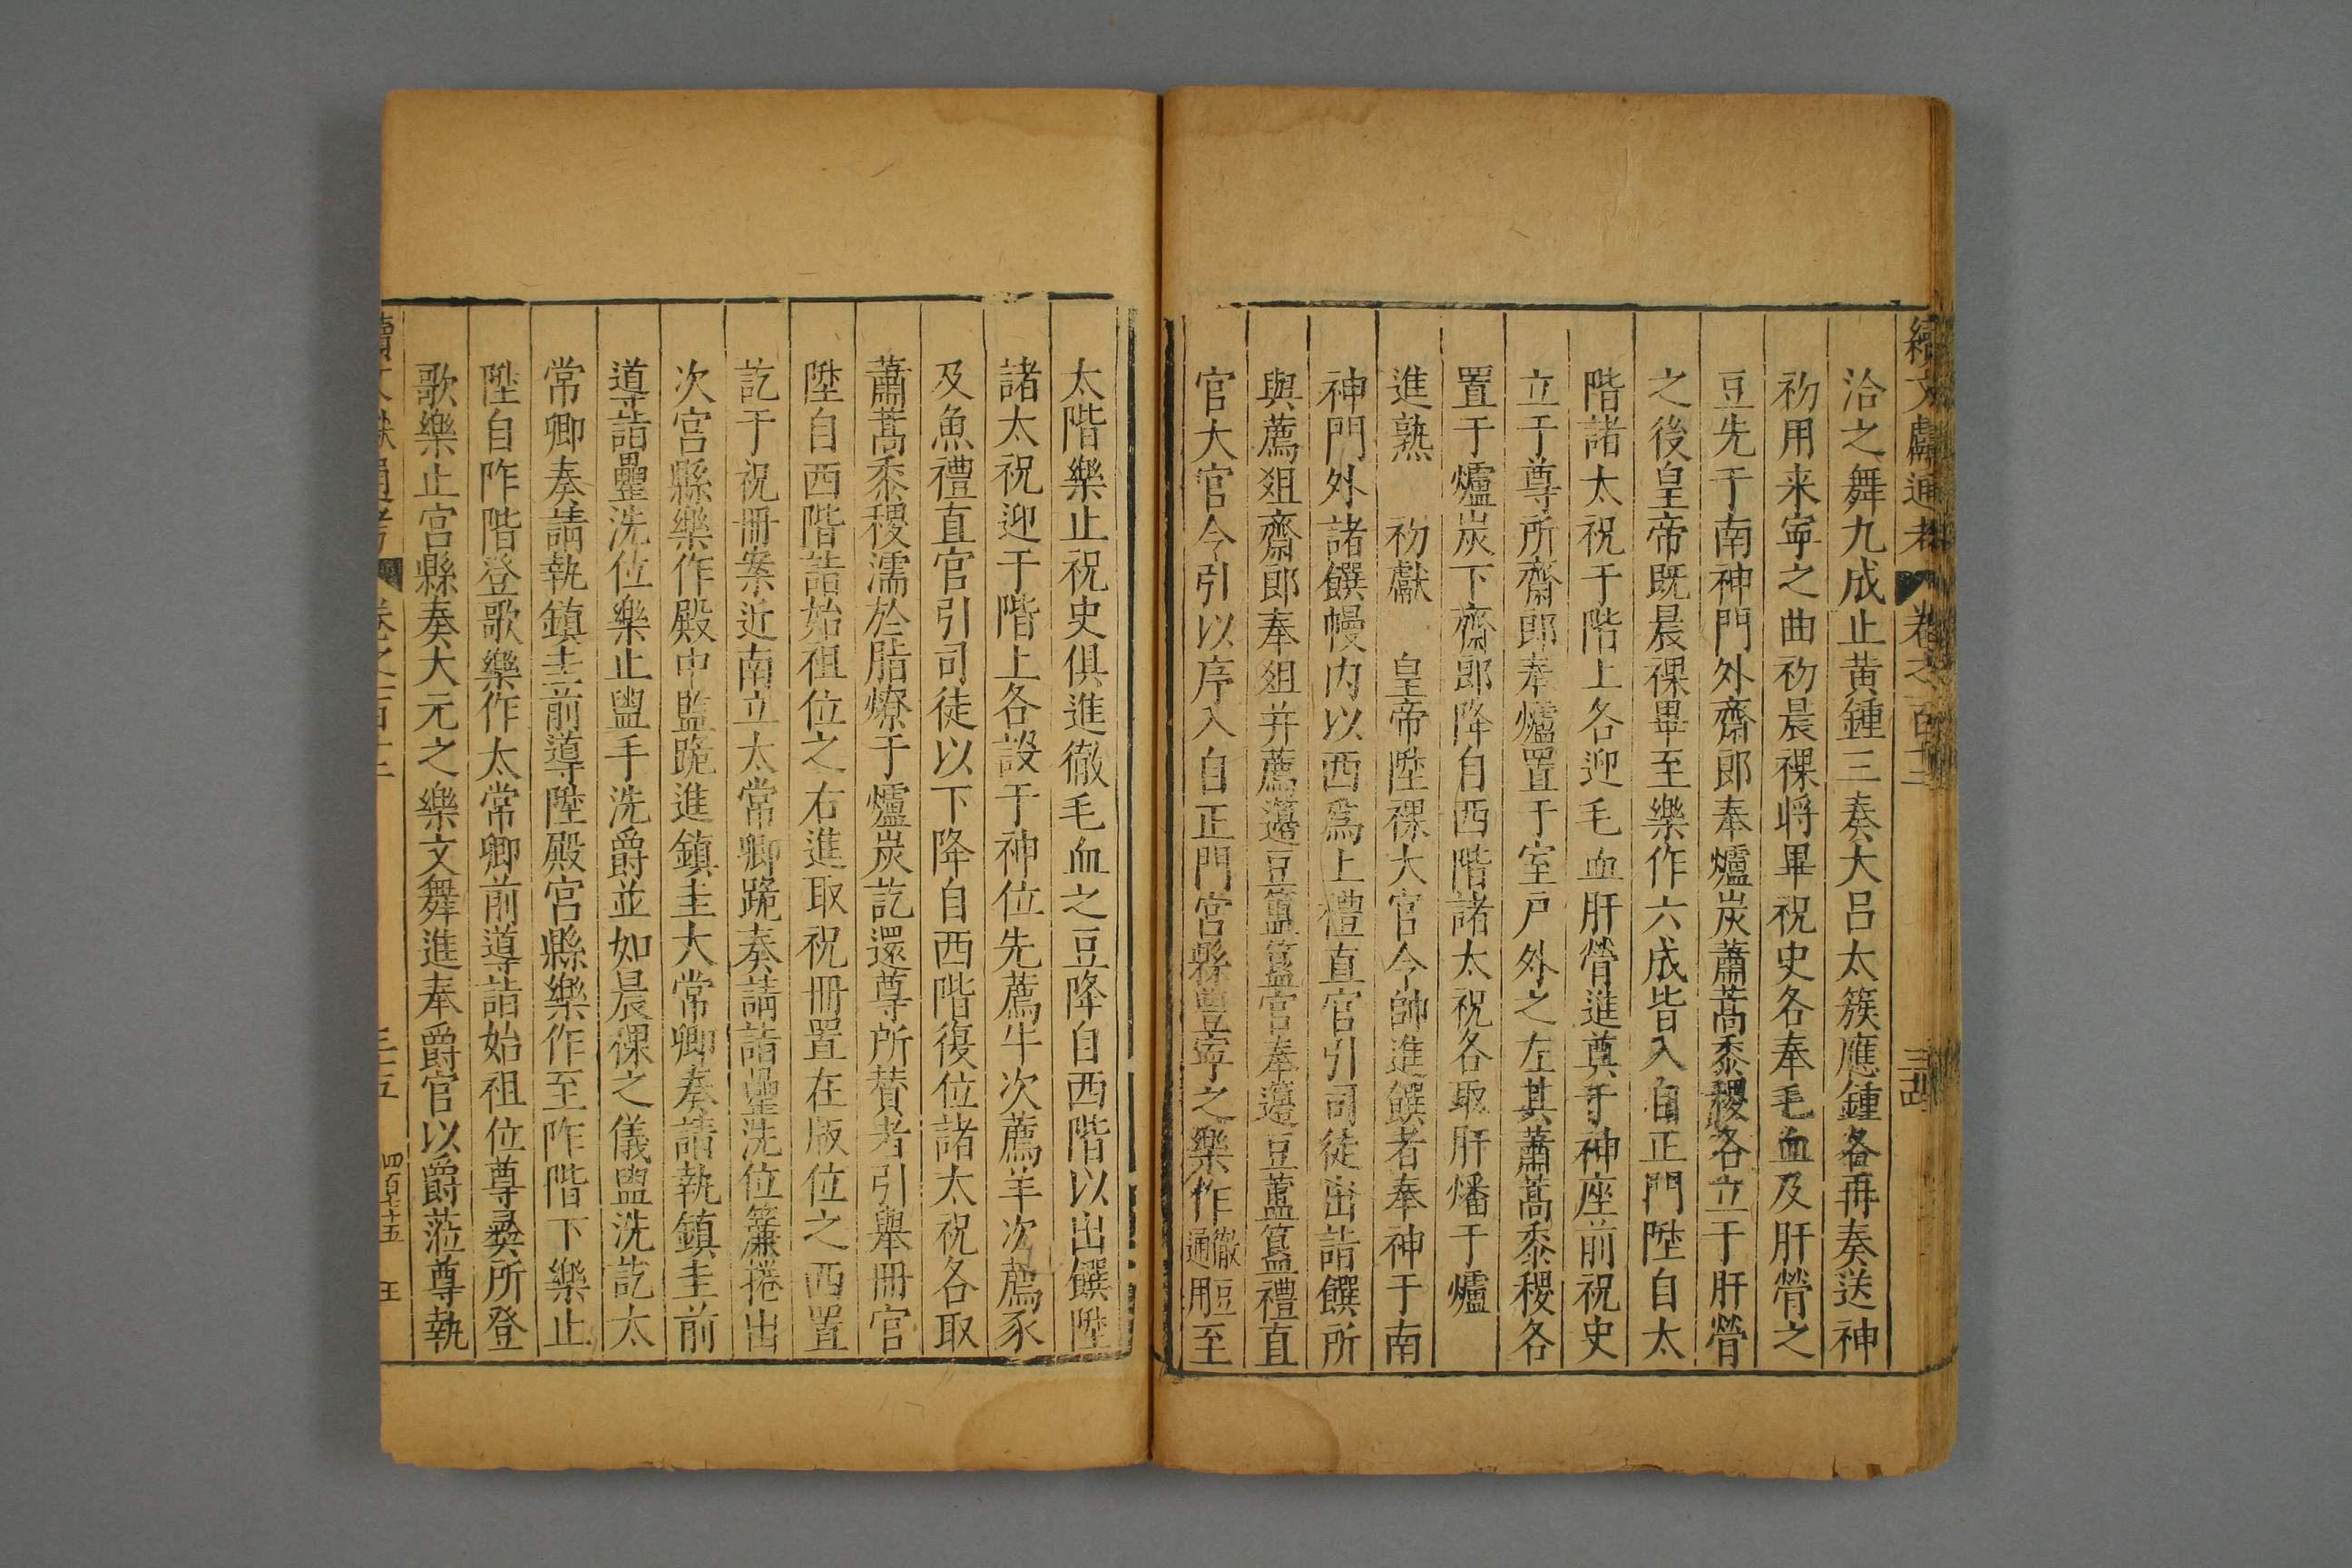 續文獻通考 卷之百十二 三四
洽之舞九成止黄鍾三奏大吕太簇應鍾各再奏送神
礽用来寧之曲礽晨祼將畢祝史各奉毛血及肝膋之
豆先于南神門外齋郎奉爐炭蕭蒿黍稷各立于肝膋
之後皇帝既晨祼畢至樂作六成皆入自正門陞自太
階諸太祝于階上各迎毛血肝膋進奠于神座前祝史
立于尊所齋郎奉爐置于室戸外之左其蕭蒿黍稷各
置于爐炭下齋郎降自西階諸太祝各取肝燔于爐
進熟 礽獻 皇帝陞祼大官令帥進饌者奉神于南
神門外諸饌幔内以西爲上禮直官引司徒出詣饌所
與薦俎齋郎奉俎并薦籩豆簠簋官奉籩豆簠簋禮直
官大官令引以序入自正門宮縣豐寧之樂作徹豆通用至
太階樂止祝史俱進徹毛血之豆降自西階以出饌陞
諸太祝迎于階上各設于神位先薦牛次薦羊次薦豕
及魚禮直官引司徒以下降自西階復位諸太祝各取
蕭蒿黍稷濡於脂燎于爐炭訖還尊所賛者引舉冊官
陞自西階詣始祖位之右進取祝冊置在版位之西置
訖于祝冊案近南立太常卿跪奏請詣罍洗位簾捲出
次宮縣樂作殿中監跪進鎮圭大常卿奏請執鎮圭前
導詣罍洗位樂止盥手洗爵並如晨祼之儀盥洗訖太
常卿奏請執鎮圭前導陞殿宮縣樂作至阼階下樂止
陞自阼階登歌樂作太常卿前導詣始祖位尊彛所登
歌樂止宮縣奏大元之樂文舞進奉爵官以爵蒞尊執
續文獻通考 卷之百十二 三十五 四百七十五 王